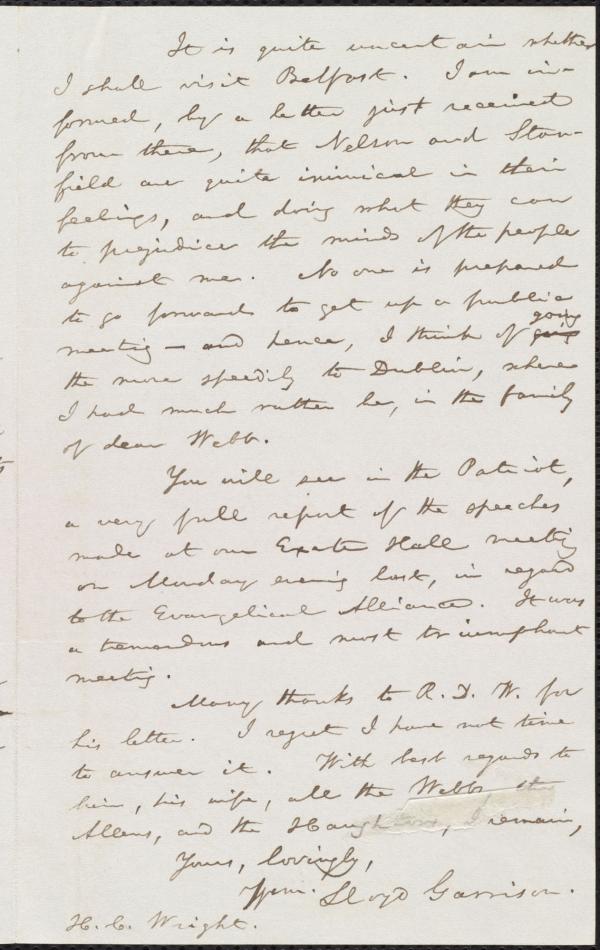 It is quite uncertain whether
I shall visit Belfast. I am in-
formed, by a letter just received
from there, that Nelson and Stan-
field are quite inimical in their
feelings, and doing what they can
to prejudice the minds of the people
against me. No one is prepared
to go forward to get up a public
meeting — and hence, I think of going
the more speedily to Dublin, where
I had much rather be, in the family
of dear Webb.
You will see in the Patriot,
a very full report of the speeches
made at our Exeter Hall meeting
on Monday evening last, in regard
to the Evangelical Alliance. It was
a tremendous and most triumphant
meeting.
Many thanks to R. D. W. for
his letter. I regret I have not time
to answer it. With best regards to
him, his wife, all the Webbs, the
Allens, and the Haughtons, I remain,
Yours, lovingly,
Wm. Lloyd Garrison.
H. C. Wright.